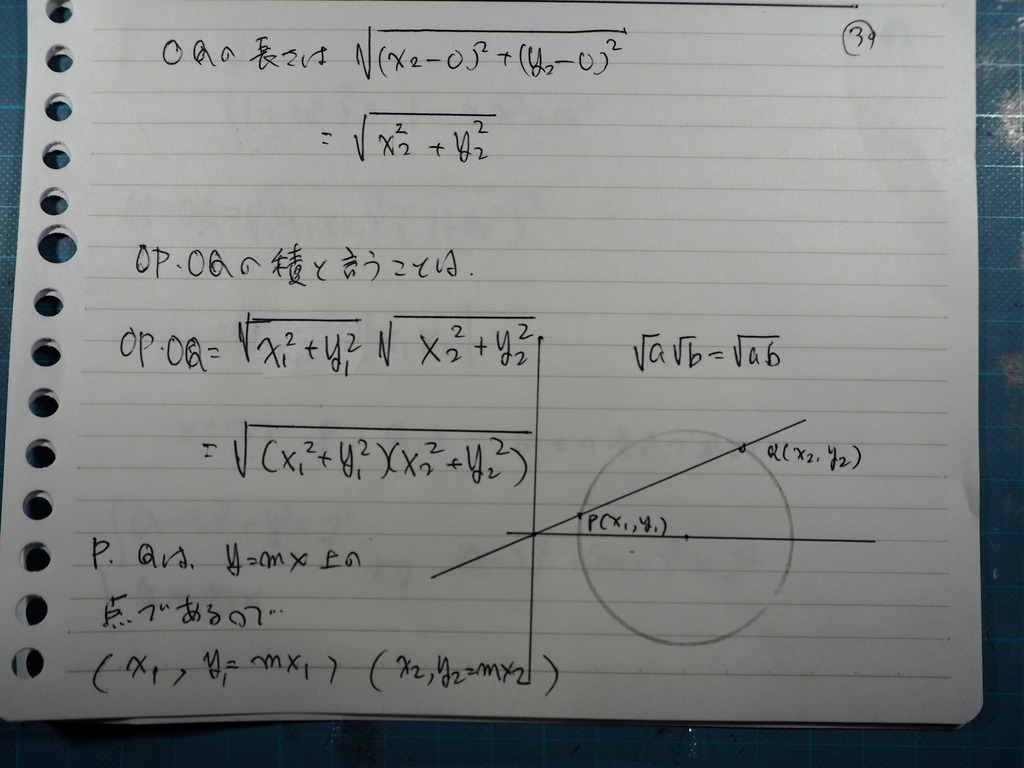 39
OQの長さは √(x₂-0)²+(y₂-0)²
= √x₂²+y₂²
OP・OQの積と言うことは.
OP・OQ= √x₁²+y₁² √x₂²+y₂²
√a√b=√ab
= √(x₁²+y₁²)(x₂²+y₂²)
Q(x₂, y₂)
P(x₁, y₁)
P. Qは、y=mx上の
点であるので…
(x₁, y₁=mx₁) (x₂, y₂=mx₂)